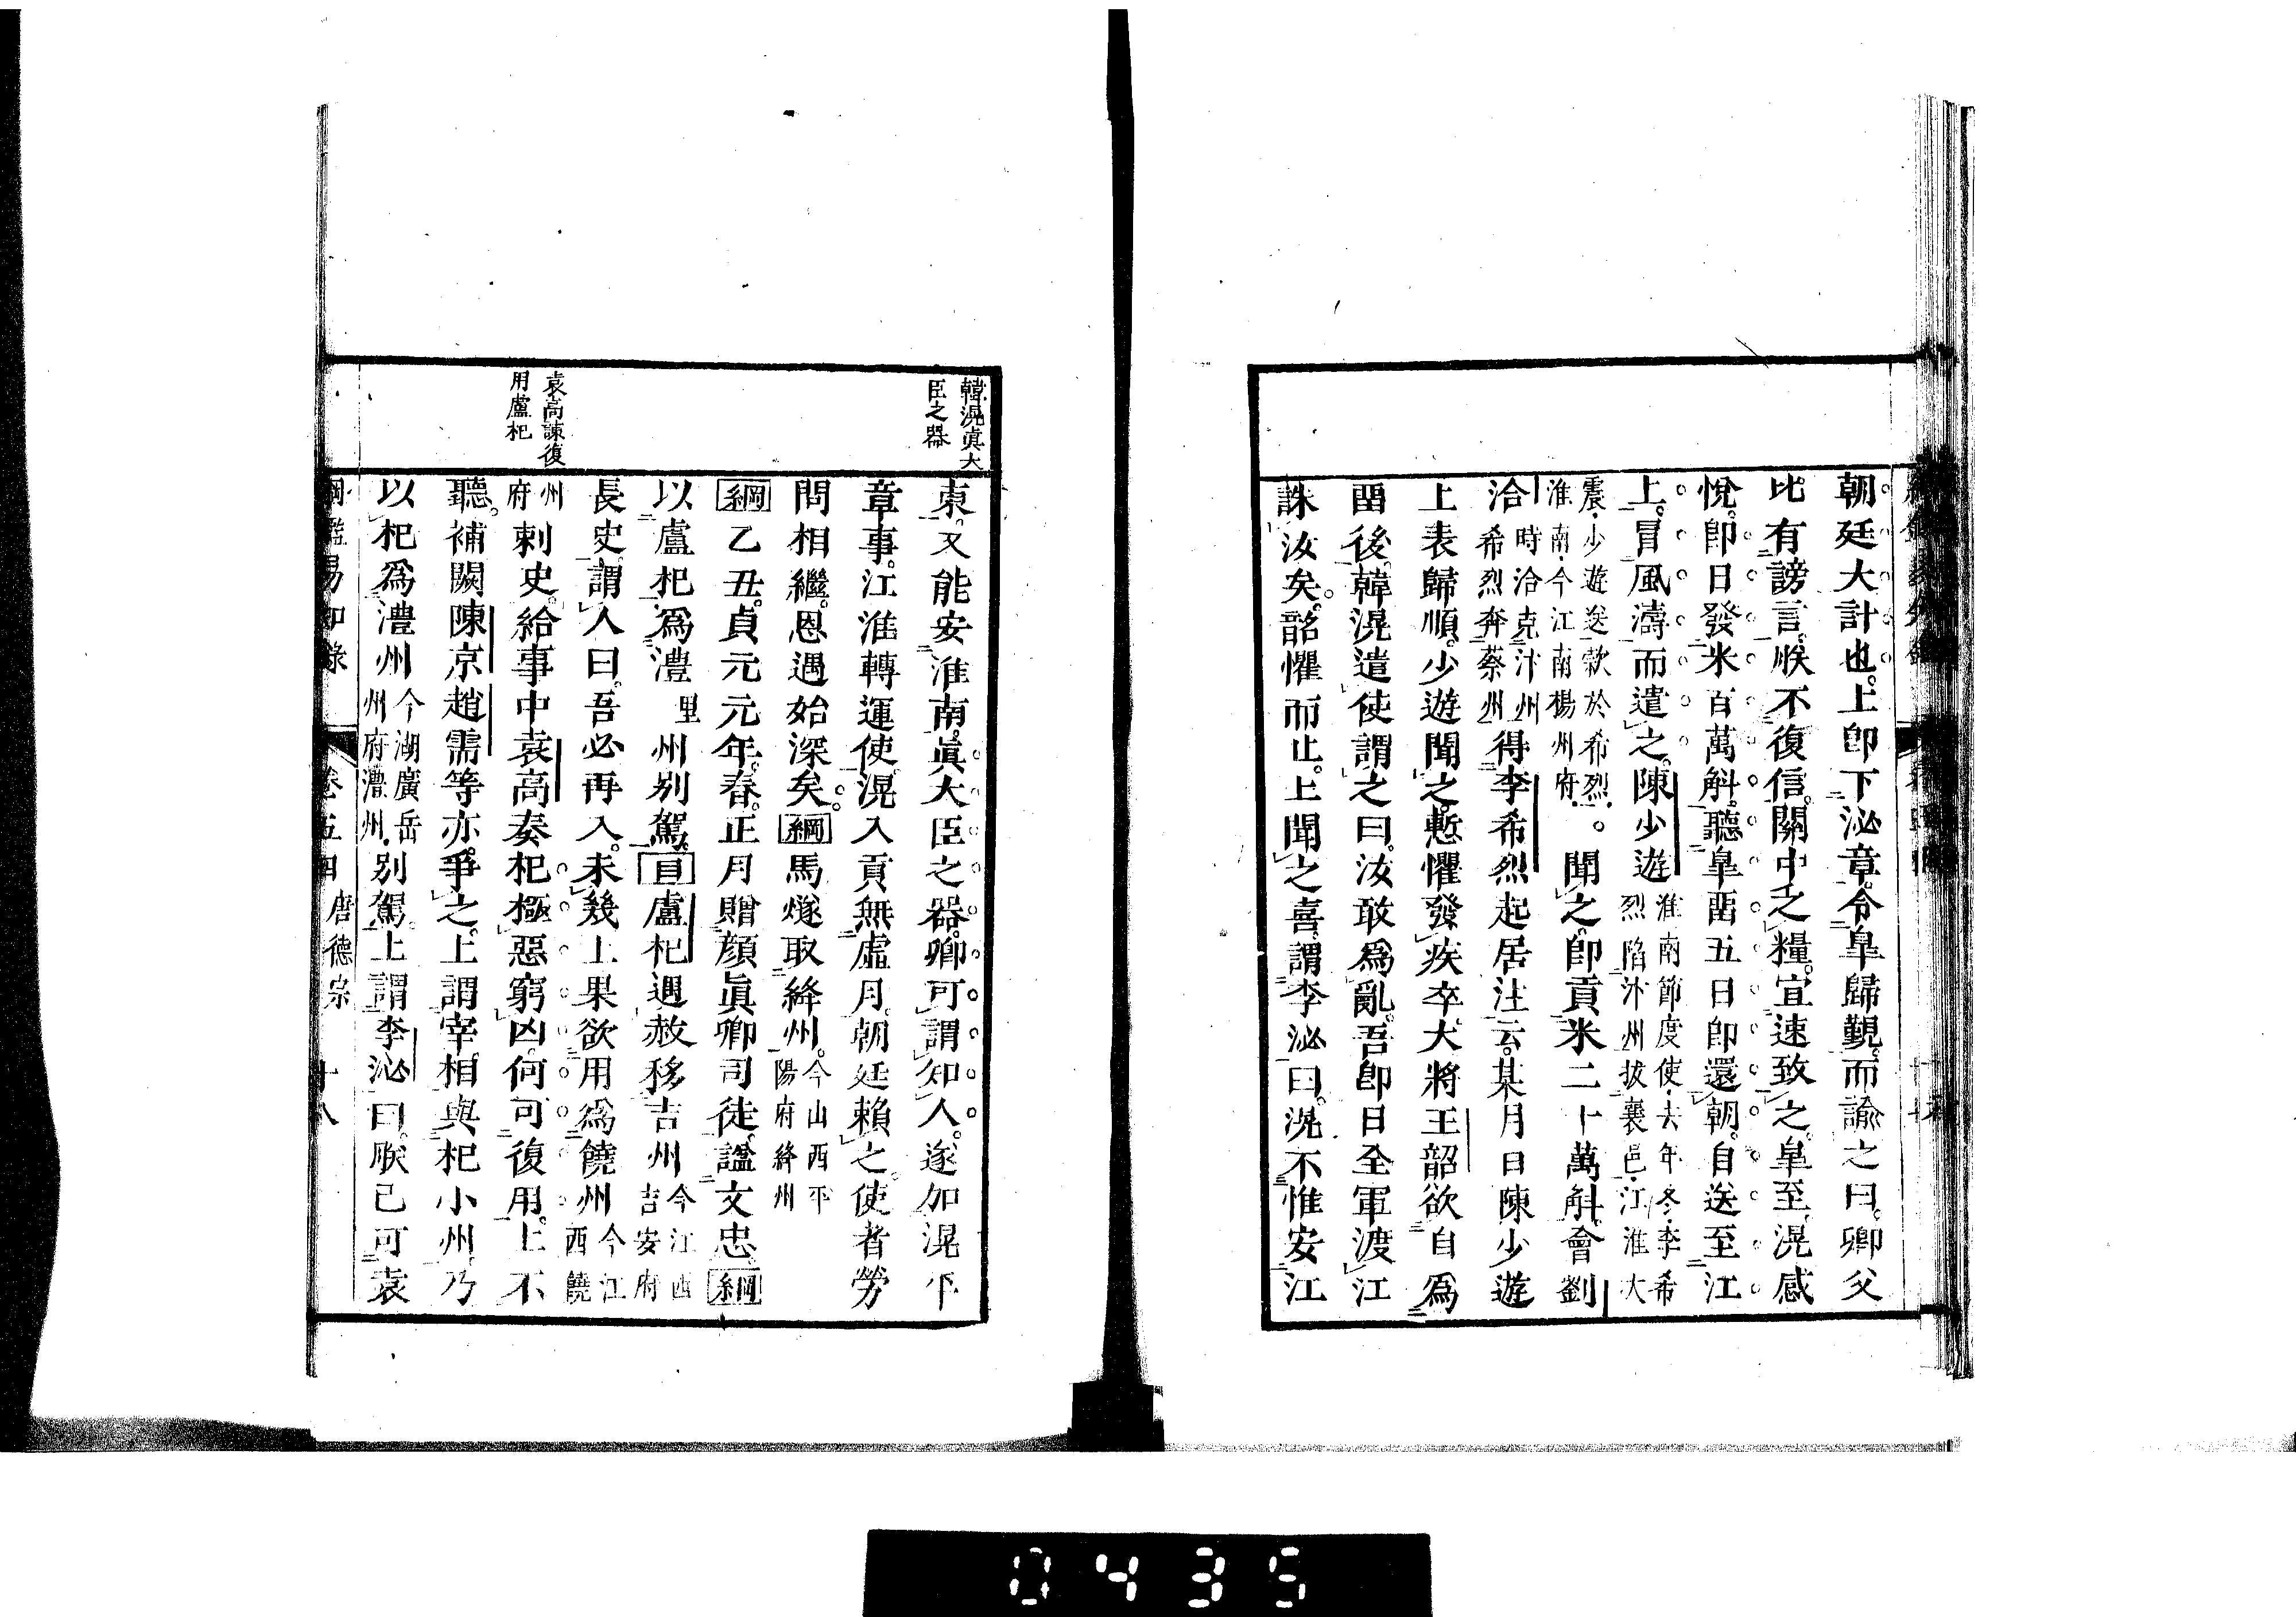 朝廷大計也。上卽下泌章。令皐歸覲。而諭之曰。卿父
比有謗言。朕不復信。關中乏糧。宜速致之。皐至。滉感
悅。卽日發米百萬斛。聽皐畱五日卽還朝。自送至江
上。冒風濤而遣之。陳少遊
淮南節度使。去年冬。李希
烈陷汴州拔襄邑。江淮大
震。少遊送款於希烈。
淮南。今江南楊州府。
。聞之。卽貢米二十萬斛。會劉
洽
時洽克汴州
希烈奔蔡州
得李希烈起居注云。某月日陳少遊
上表歸順。少遊聞之。慙懼發疾卒。大將王韶欲自爲
畱後。韓滉遣使謂之曰。汝敢爲亂。吾卽日全軍渡江
誅汝矣。韶懼而止。上聞之喜。謂李泌曰。滉不惟安江
韓滉眞大
臣之器
東。又能安淮南。眞大臣之器。卿可謂知人。遂加滉平
章事。江淮轉運使。滉入貢無虛月。朝廷賴之。使者勞
問相繼。恩遇始深矣。綱馬燧取絳州。
今山西平
陽府絳州
綱乙丑。貞元元年。春。正月贈顏眞卿司徒。諡文忠。綱
以盧杞爲澧
里
州別駕。目盧杞遇赦移吉州
今江西
吉安府
長史。謂人曰。吾必再入。未幾上果欲用爲饒州
今江
西饒
袁高諫復
用盧杞
州
府
刺史。給事中袁高奏杞極惡窮凶。何可復用。上不
聽。補闕陳京趙需等亦爭之。上謂宰相與杞小州。乃
以杞爲澧州
今湖廣岳
州府澧州。
別駕。上謂李泌曰。朕已可袁
綱鑑易知錄 卷五四 唐德宗 十八
0435